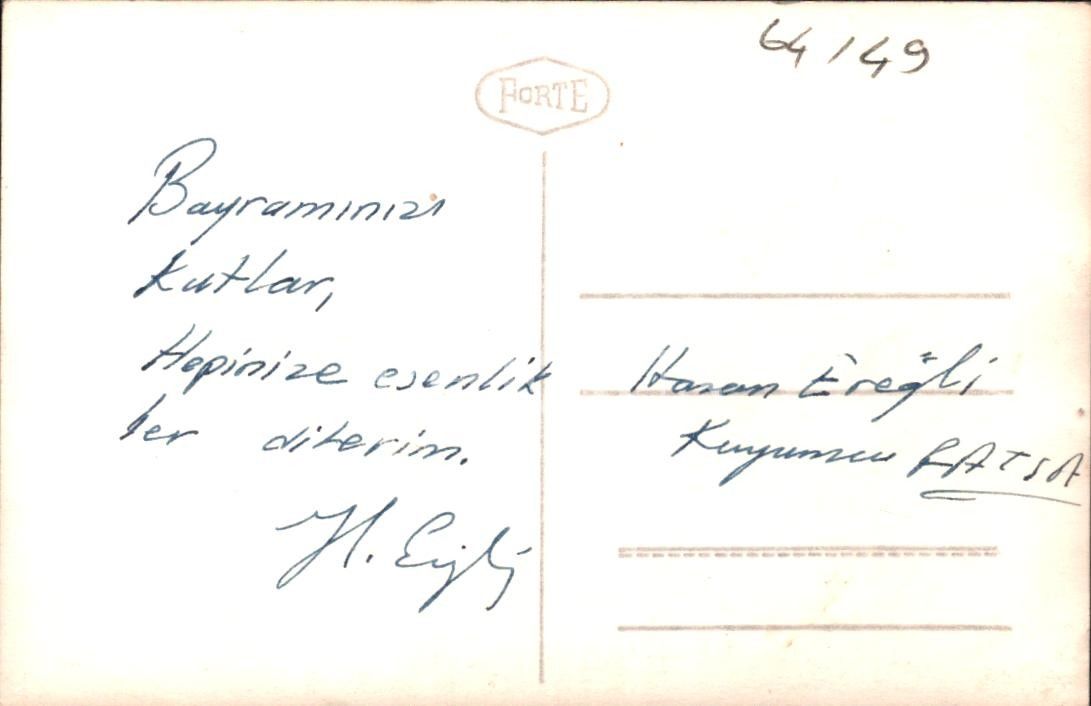 64/49
FORTE
Bayramınızı
Kutlar,
Hepinize esenlik
ler dilerim.
Hasan Ereğli
Kuyumcu FATSA